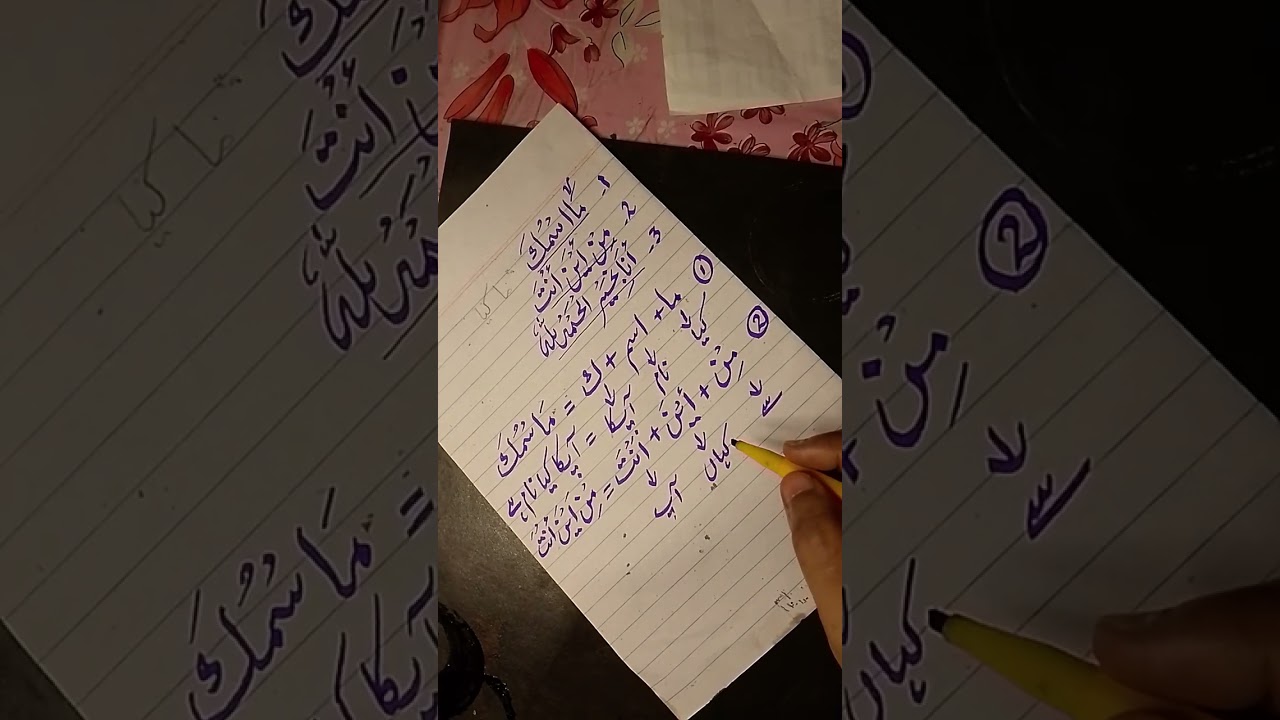 1- مَا اسْمُكَ
2- مِنْ أَيْنَ أَنْتَ
3- أَنَا بِخَيْرٍ الحَمْدُ لِلّٰهِ
① ما + اسم + ك = مَا سْمُكَ
کیا نام آپکا = آپکا کیا نام ہے
② مِنْ + أَيْنَ + أَنْتَ = مِنْ اَيْنَ اَنْتَ
سے کہاں آپ
ما کیا